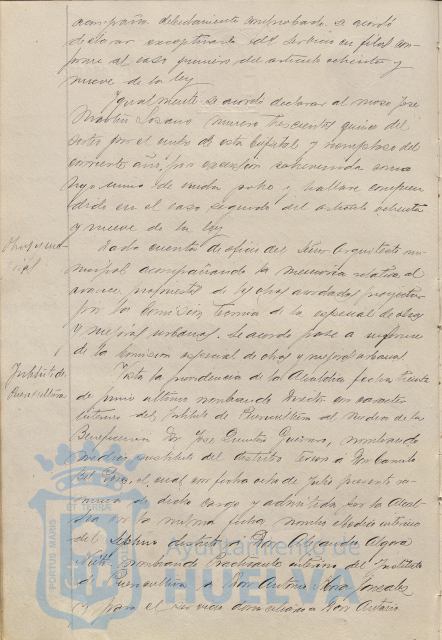 acompaña debidamente comprobada se acordó
declarar exceptuarlo del servicio en filas con-
forme al caso primero del artículo ochenta y
nueve de la ley
Igualmente se acordó declarar al mozo José
Martín Lozano número trescientos quince del
sorteo por el cupo de esta Capital y reemplazo del
corriente año, por excepción sobrevenida como
hijo único de viuda pobre y hallarse compren-
dido en el caso segundo del artículo ochenta
y nueve de la ley
Dada cuenta de oficio del Señor Arquitecto mu-
nicipal acompañando la memoria relativa al
avance propuesto de las obras acordadas
por la Comisión Técnica de la especial de obras
y mejoras urbanas. Se acordó pase a informe
de la Comisión especial de obras y mejoras urbanas
Instituto de
Puericultura
Vista la providencia de la Alcaldía fecha treinta
de junio último nombrando Director con carácter
interino del Instituto de Puericultura al Médico de la
Beneficencia Dr José, nombrando
médico sustituto del distrito tercero á Don Camilo
del, el cual con fecha ocho de julio presentó re-
nuncia de dicho cargo y admitida por la Alcal-
día en la misma fecha, nombró Médico interino
del distrito a Don Alejandro Algora
nombrando Practicante interino del Instituto
de Puericultura a Don Antonio González
y para el servicio domiciliario a Don Antonio
PORTUS MARIS ET TERRAE
Ayuntamiento de
HUELVA